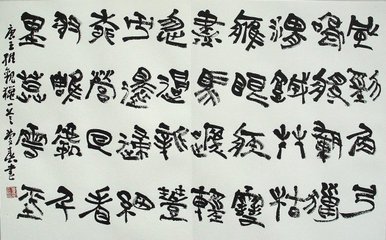 風勁角弓
鳴將軍獵
渭城艸枯
鷹眼疾雪
盡馬蹄輕
忽過新豐
市還歸細
柳營回看
射雕處千
里暮雲平
唐王維觀獵一首 書